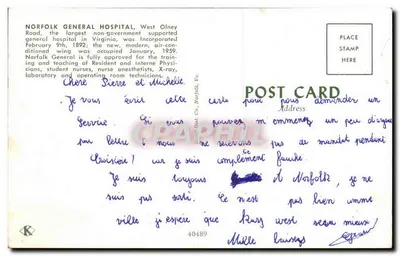 NORFOLK GENERAL HOSPITAL, West Olney
Road, the largest non-government supported
general hospital in Virginia, was Incorporated
February 9th, 1892; the new, modern, air-con-
ditioned wing was occupied January, 1959.
Norfolk General is fully approved for the train-
ing and teaching of Resident and Interne Physi-
cians, student nurses, nurse anesthetists, X-ray,
laboratory and operating room technicians.
PLACE
STAMP
HERE
POST CARD
Address
Chere Pierre et Michelle
Je vous écrit cette carte pour vous demander un
Service. Si vous pouvez m emmenez un peu d'argent
par lettre nous ne recevons pas de mandat pendant
Croisière! car je suis complement fauché.
Je suis toujours A Norfolk, je ne
suis pas sorti. Ce n'est pas bien comme
ville j'espère que Key west sera mieux
Mille baisers
K
40489